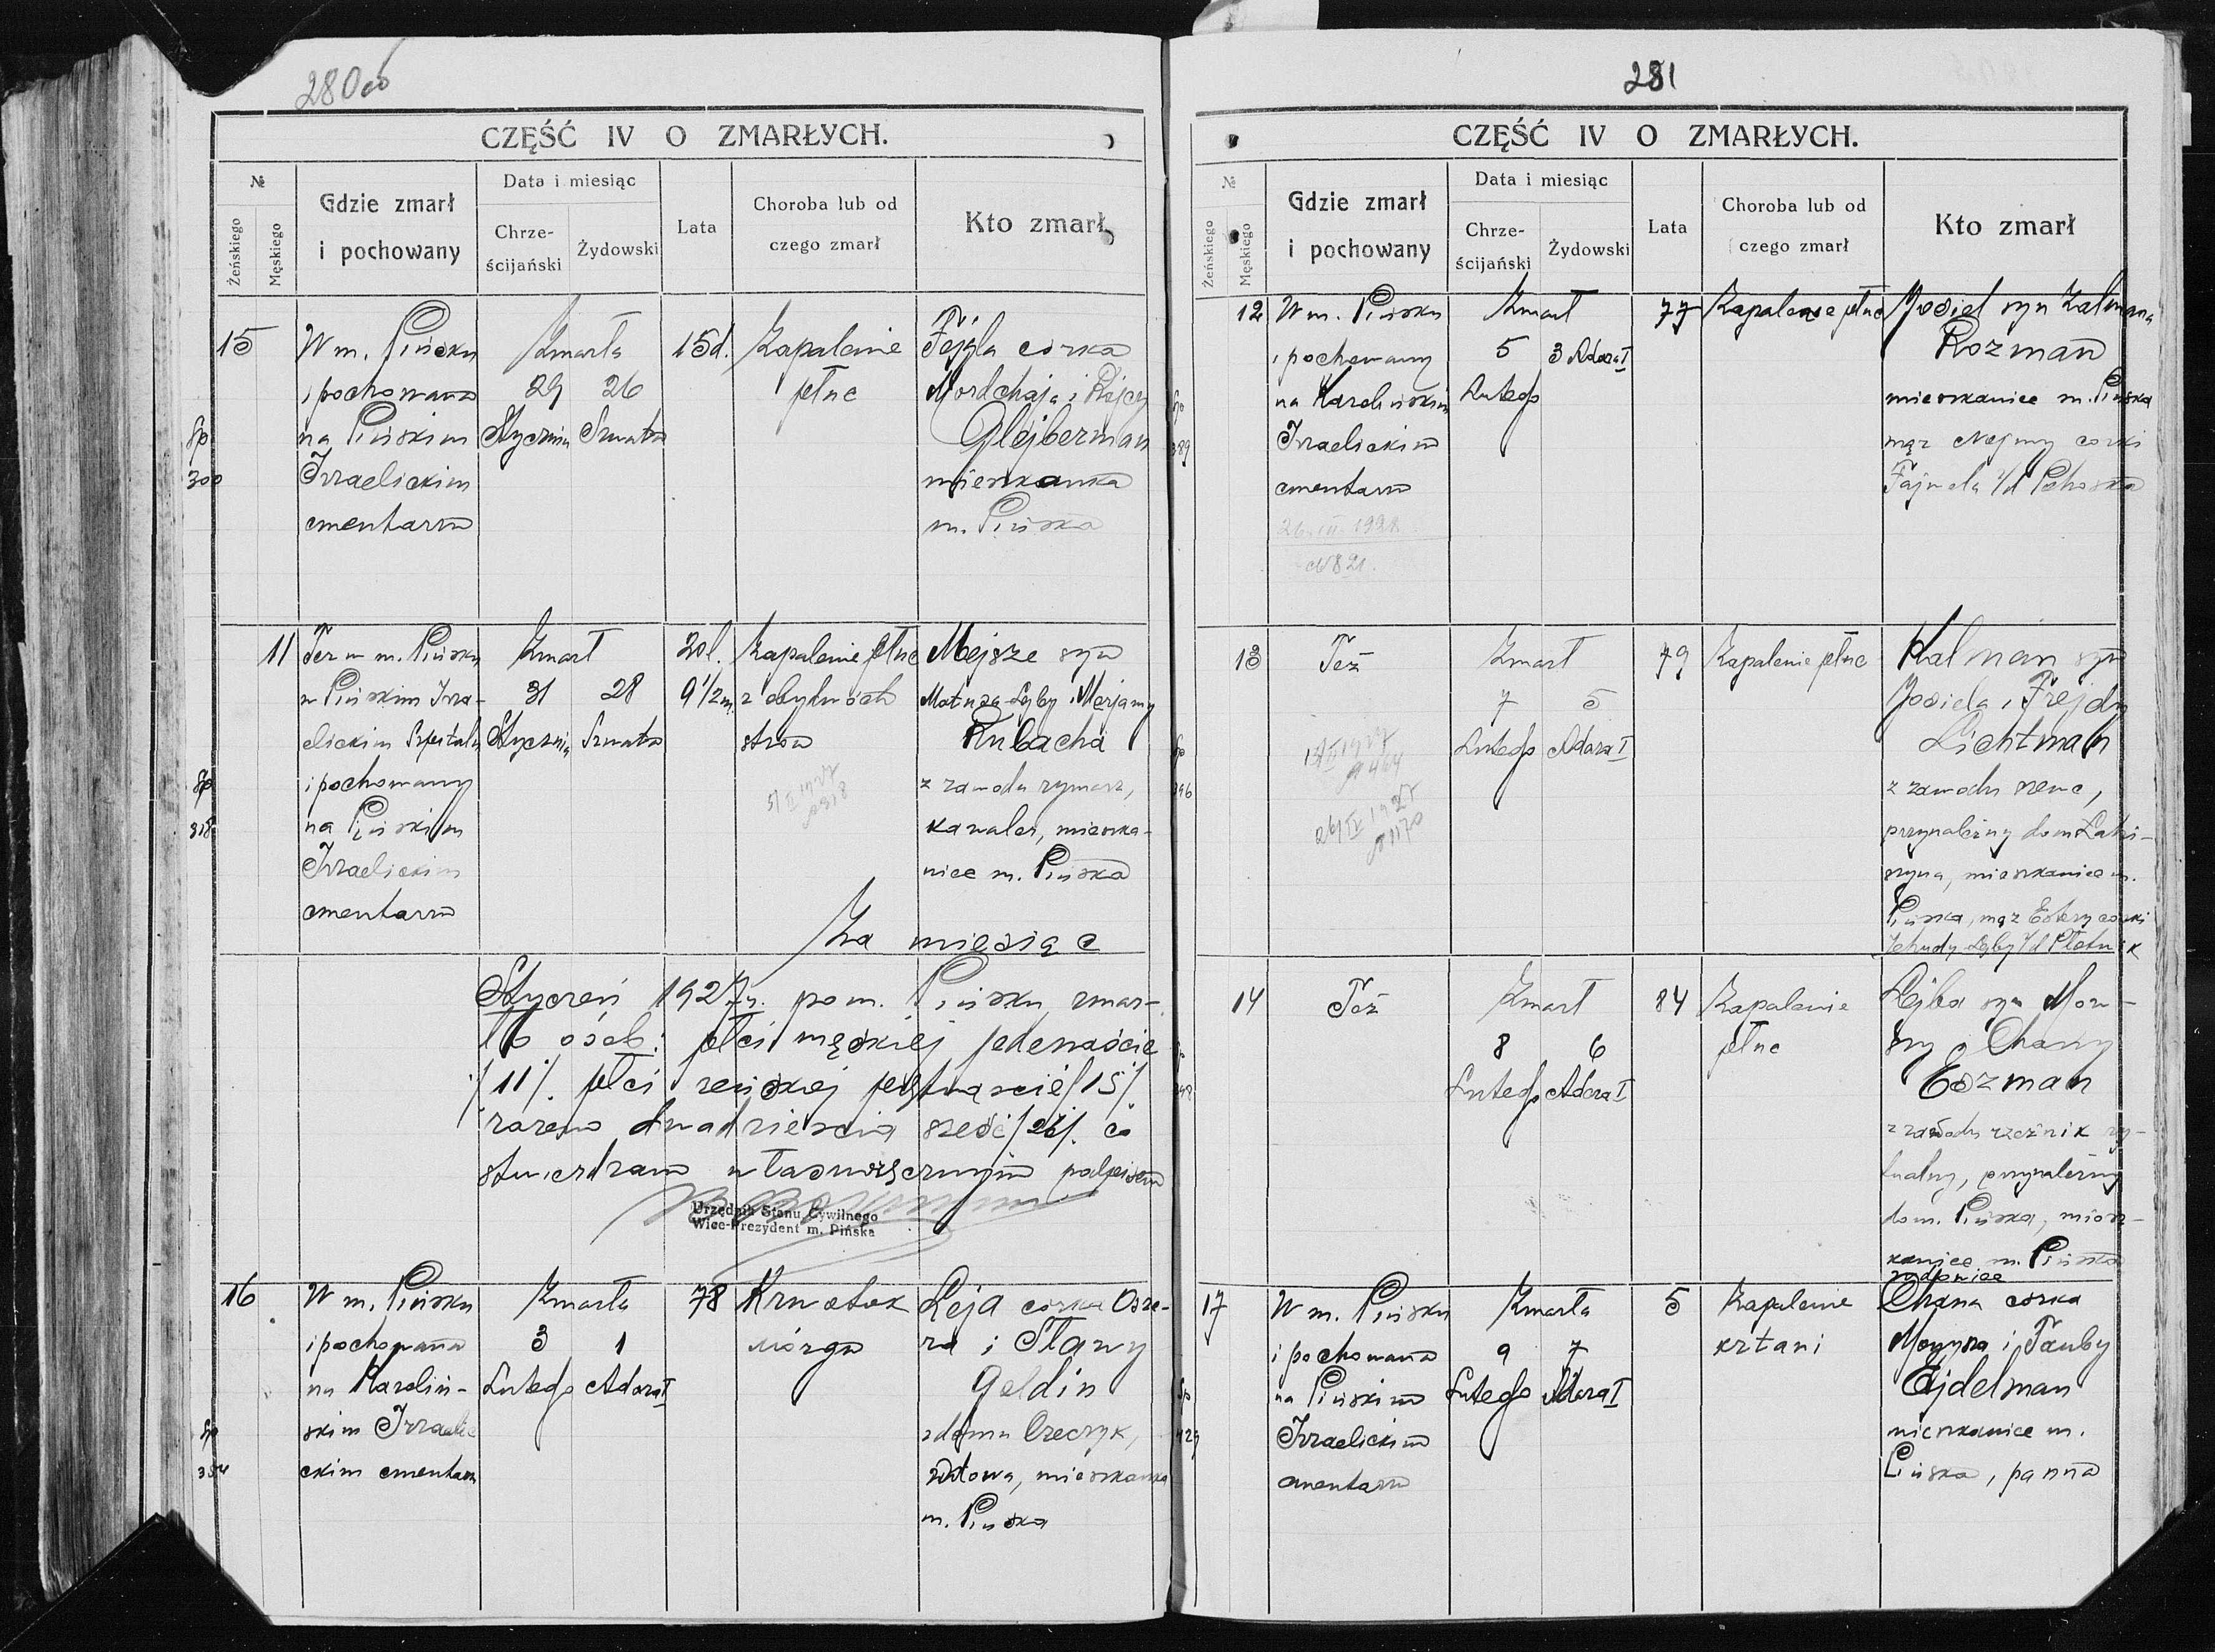 280
CZĘŚĆ IV O ZMARŁYCH.
№
Żeńskiego
Męskiego
Gdzie zmarł
i pochowany
Data i miesiąc
Chrze-
ścijański
Żydowski
Lata
Choroba lub od
czego zmarł
Kto zmarł
15
W m. Pińsku
i pochowana
na Pińskim
Izraelickim
cmentarzu
Zmarła
29 26
Stycznia Szwatu
15d.
Zapalenie
płuc
Fejgla córka
Mordchaja i
Glejberman
mieszkanka
m. Pińska
Sp
300
11
Też w m. Pińsku
w Pińskim Izra-
elickim Szpitalu
i pochowany
na Pińskim
Izraelickim
cmentarzu
Zmarł
31 28
Stycznia Szwatu
20l.
9 1/2 m.
Zapalenie płuc
Mejsze syn
Matusa-Lejby i Marjamy
Rubacha
z zawodu rymarz,
kawaler, mieszka-
niec m. Pińska
Sp
318
Za miesiąc
Styczeń 1927 r. po m. Pińsku zmar-
ło osób: płci męskiej jedenaście
/11/. płci żeńskiej piętnaście /15/.
razem dwadzieścia sześć /26/. co
stwierdzam własnoręcznym podpisem
Urzędnik Stanu Cywilnego
Wice-Prezydent m. Pińska
16
W m. Pińsku
i pochowana
na Karoliń-
skim Izraeli-
ckim cmentarzu
Zmarła
3 1
Lutego Adara I
78
Krwotok
mózgu
Leja córka Osze-
ra i Sławy
Geldin
z domu Oreczyk,
wdowa, mieszkanka
m. Pińska
Sp
281
CZĘŚĆ IV O ZMARŁYCH.
№
Żeńskiego
Męskiego
Gdzie zmarł
i pochowany
Data i miesiąc
Chrze-
ścijański
Żydowski
Lata
Choroba lub od
czego zmarł
Kto zmarł
12
W m. Pińsku
i pochowany
na Karolińskim
Izraelickim
cmentarzu
26 III 1928
№ 821.
Zmarł
5 3 Adara I
Lutego
77
Zapalenie płuc
Josiel syn Zalmana
Rozman
mieszkaniec m. Pińska
mąż Nejmy córki
Sp
389
13
Też
Zmarł
7 5
Lutego Adara I
79
Zapalenie płuc
Kalman syn
Josiela i Frejdy
Lichtman
z zawodu szewc,
przynależny do m. Łahi-
szyna, mieszkaniec m.
Pińska, mąż Estery córki
Jehudy Lejby z/d Płotnik
Sp
396
14
Też
Zmarł
8 6
Lutego Adara I
84
Zapalenie
płuc
Lejba syn Mow-
szy i Chany
Eozman
z zawodu rzeźnik ry-
tualny, przynależny
do m. Pińska, miesz-
kaniec m. Pińska
wdowiec
17
W m. Pińsku
i pochowana
na Pińskim
Izraelickim
cmentarzu
Zmarła
9 7
Lutego Adara I
5
Zapalenie
krtani
Chana córka
i Tauby
Ajdelman
mieszkanice m.
Pińska, panna
Sp
429